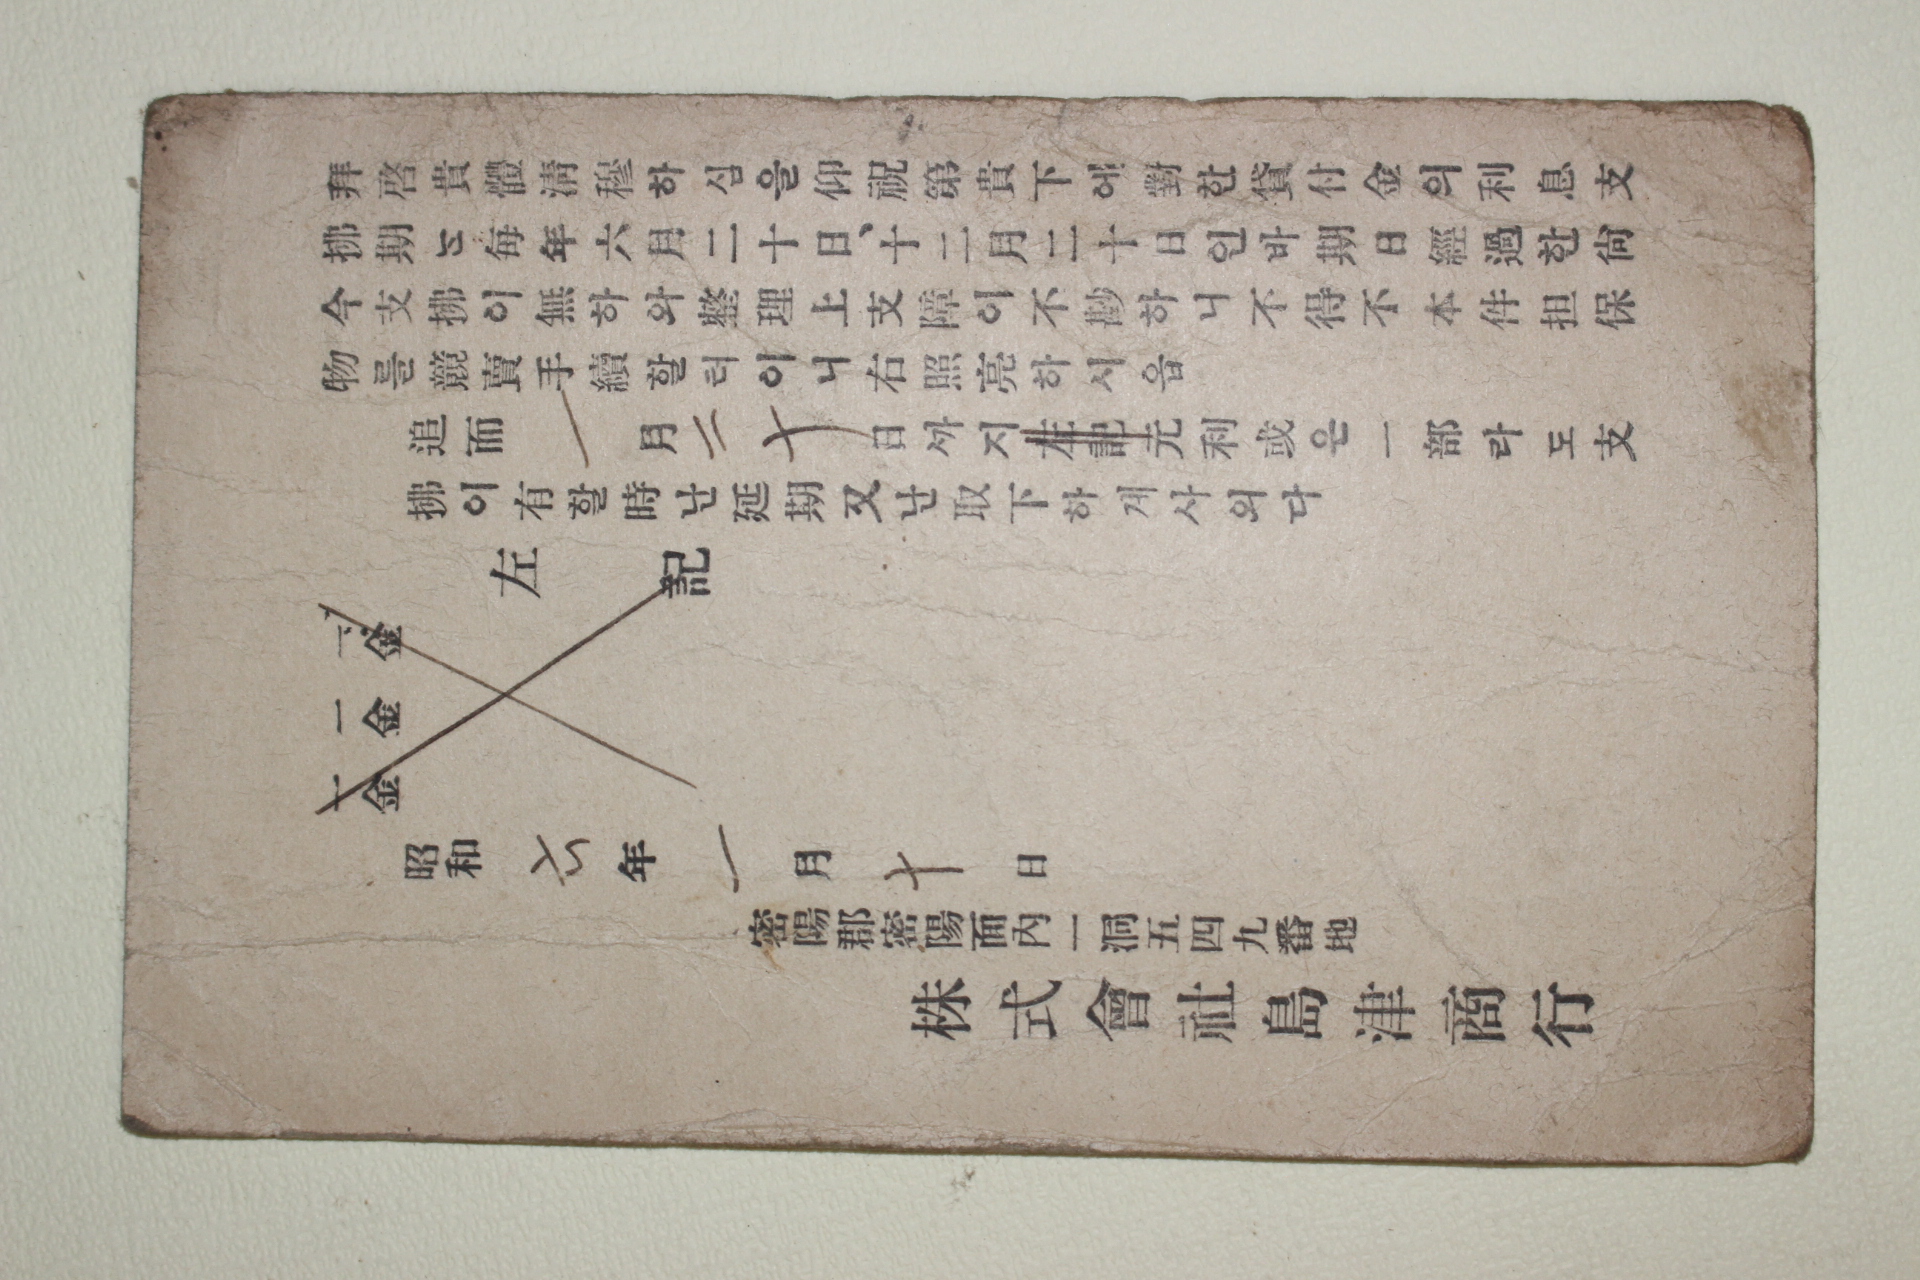 拜啓貴體淸穆하심을仰祝第貴下에對한貸付金의利息支
拂期는每年六月二十日、十二月二十日인바期日經過한尙
今支拂이無하와整理上支障이不尠하니不得不本件担保
物를競賣手續할터이니右照亮하시옵
追而一月二十日까지左記元利或은一部라도支
拂이有할時난延期又난取下하개사외다
左記
一金
一金
一金
昭和六年一月十日
密陽郡密陽面內一洞五四九番地
株式會社島津商行